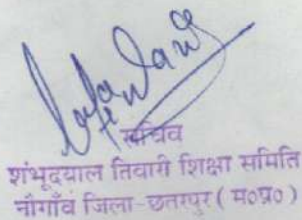 सचिव
शंभूदयाल तिवारी शिक्षा समिति
नौगाँव जिला-छतरपुर ( म०प्र० )